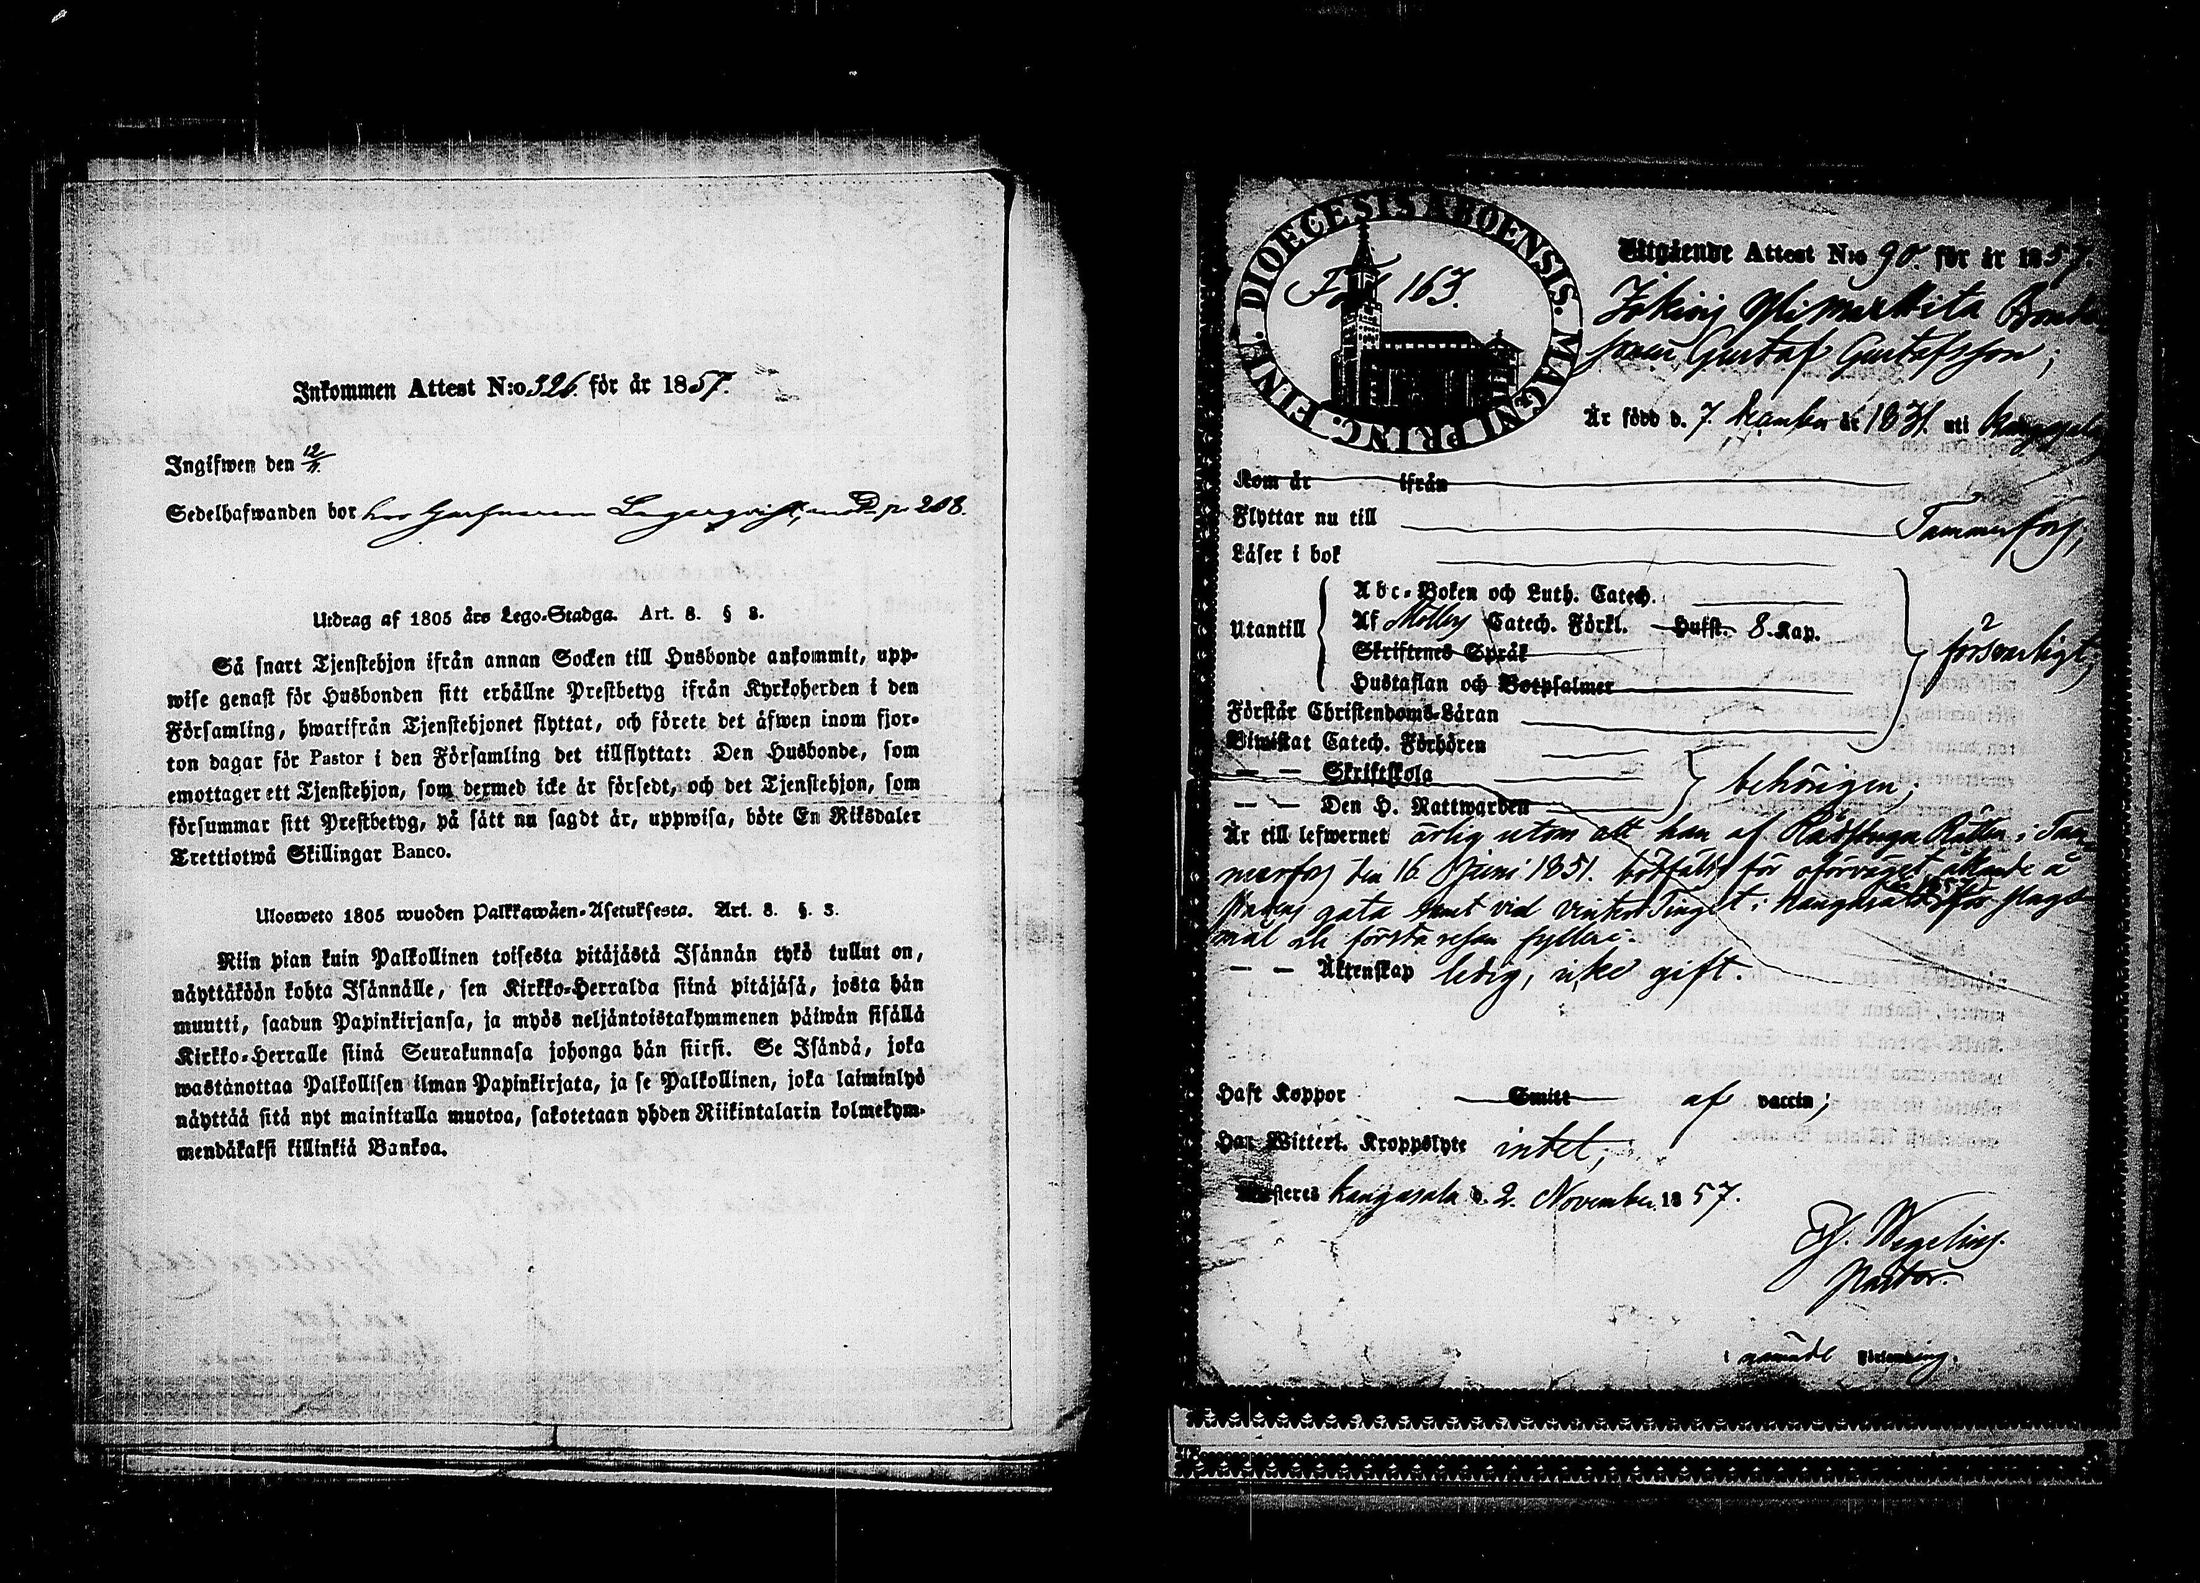 Inkommen Attest N:o 326. för år 1857.
Ingifwen den 12/11.
Sedelhafwanden bor hos Garfvaren Lagerqvist, p. 208.
Utdrag af 1805 års Lego-Stadga. Art. 8. § 3.
Så snart Tjenstehjon ifrån annan Socken till Husbonde ankommit, upp-
wise genast för Husbonden sitt erhållne Prestbetyg ifrån Kyrkoherden i den
Församling, hwarifrån Tjenstehjonet flyttat, och förete det äfwen inom fjor-
ton dagar för Pastor i den Församling det tillflyttat: Den Husbonde, som
emottager ett Tjenstehjon, som dermed icke är försedt, och det Tjenstehjon, som
försummar sitt Prestbetyg, på sätt nu sagdt är, uppwisa, böte En Riksdaler
Trettiotwå Skillingar Banco.
Ulosweto 1805 wuoden Palkkawäen-Asetuksesta. Art. 8. §. 3.
Niin pian kuin Palkollinen toisesta pitäjästä Isännän tykö tullut on,
näyttäköön kohta Isännälle, sen Kirkko-Herralda siinä pitäjäsä, josta hän
muutti, saadun Papinkirjansa, ja myös neljäntoistakymmenen päiwän sisällä
Kirkko-Herralle siinä Seurakunnasa johonga hän siirsi. Se Isändä, joka
wastanottaa Palkollisen ilman Papinkirjata, ja se Palkollinen, joka laiminlyö
näyttää sitä nyt mainitulla muotoa, sakotetaan yhden Riikintalarin kolmekym-
mendäkaksi killinkiä Bankoa.
DIOECESIS ABOENSIS. MAGNI PRINC. FINL.
Fol 163.
Utgående Attest N:o 90. för år 1857.
Gustaf Gustafsson;
Är född d. 7. år 1831. uti Kangasala
Kom år ifrån
Flyttar nu till Tammerfors;
Läser i bok
Utantill
Abc-Boken och Luth. Catech.
Af Möllers Catech. Förkl. Hufst. 8. Kap.
Skriftenes Språk
Hustaflan och Botpsalmer
försvarligt;
Förstår Christendoms-Läran
Biwistat Catech. Förhören
— — Skriftskola
— — Den H. Nattwarden
behörigen;
Är till lefwernet ärlig utom att han af Rådstugu Rätten i Tam-
merfors den 16. Juni 1851. bötfälts för oförväget åkande å
stadens gata samt vid vinter Tinget i Kangasala för slags-
mål och första resan fylleri.
— — Äktenskap ledig, icke gift.
Haft Koppor Smitt af vaccin;
Har Witterl. Kroppslyte intet;
Attesteres Kangasala d. 2. November 1857.
Wegelius.
Pastor.
i nämde Församling.